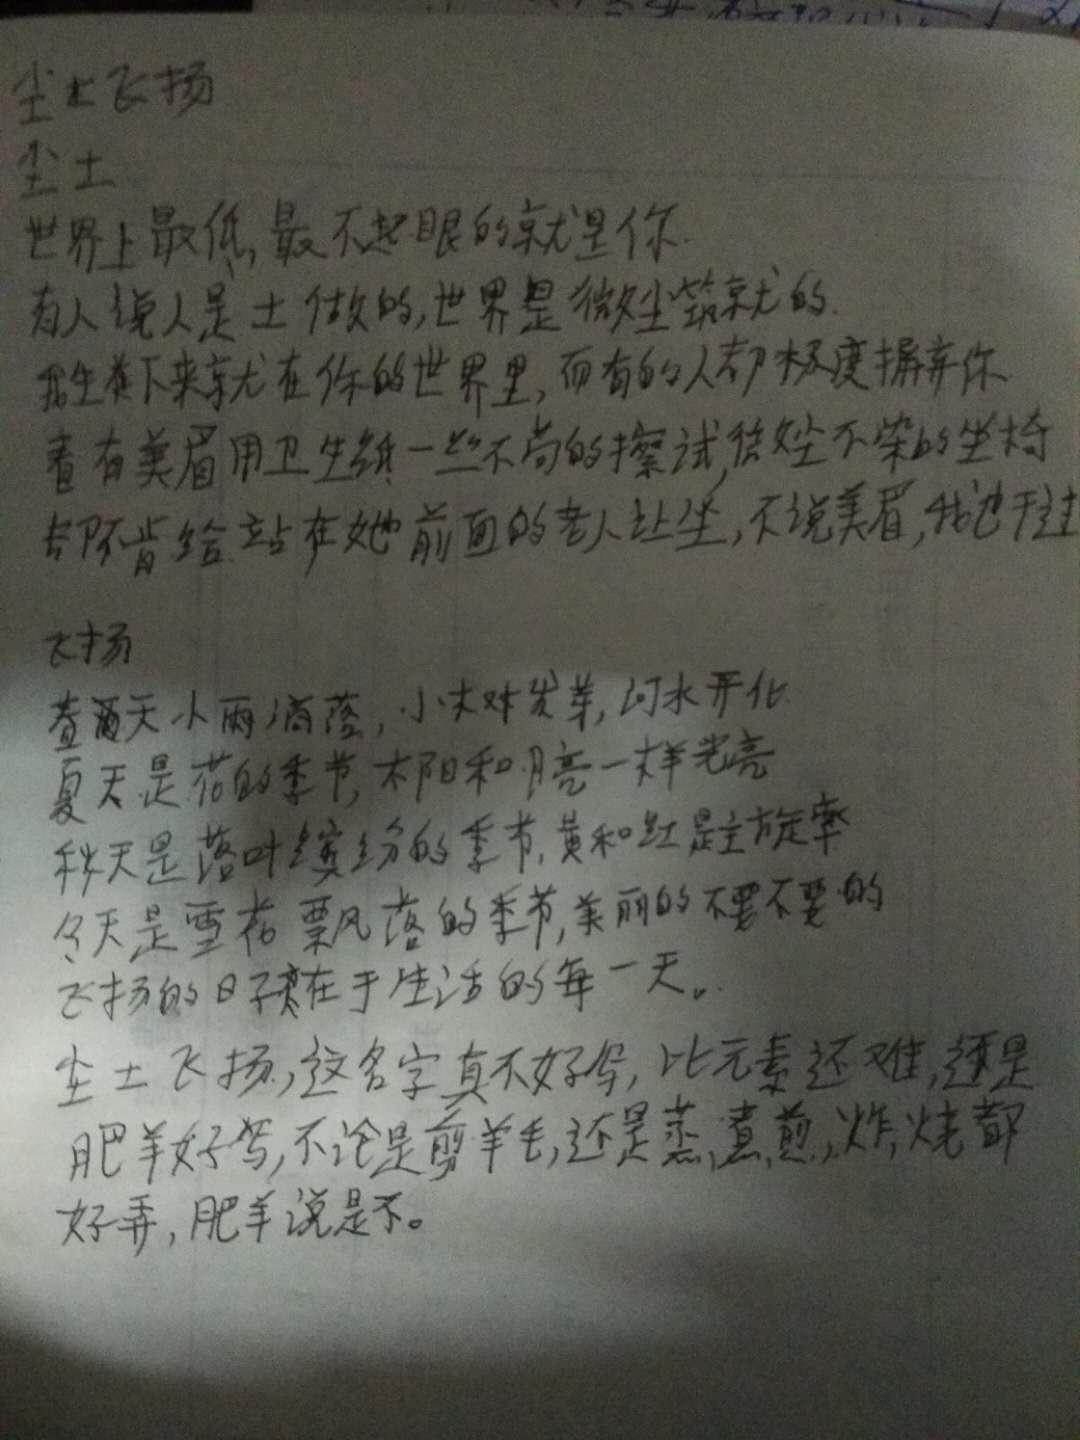 尘土飞扬
尘土
世界上最低,最不起眼的就是你.
有人说人是土做的,世界是微尘筑就的.
我生下来就在你的世界里,而有的人却极度摒弃你
看有美眉用卫生纸一丝不苟的擦试纤尘不染的坐椅
却不肯给站在她前面的老人让坐,不说美眉,我也干过
飞扬
春天小雨滴落,小木对发芽,河水开化.
夏天是花的季节,太阳和月亮一样光亮
秋天是落叶缤纷的季节,黄和红是主旋率
冬天是雪花飘落的季节,美丽的不要不要的
飞扬的日子在于生活的每一天。
尘土飞扬,这名字真不好写,比元素还难,还是
肥羊好写,不论是剪羊毛,还是蒸,煮,煎,炸,烧都
好弄,肥羊说是不。